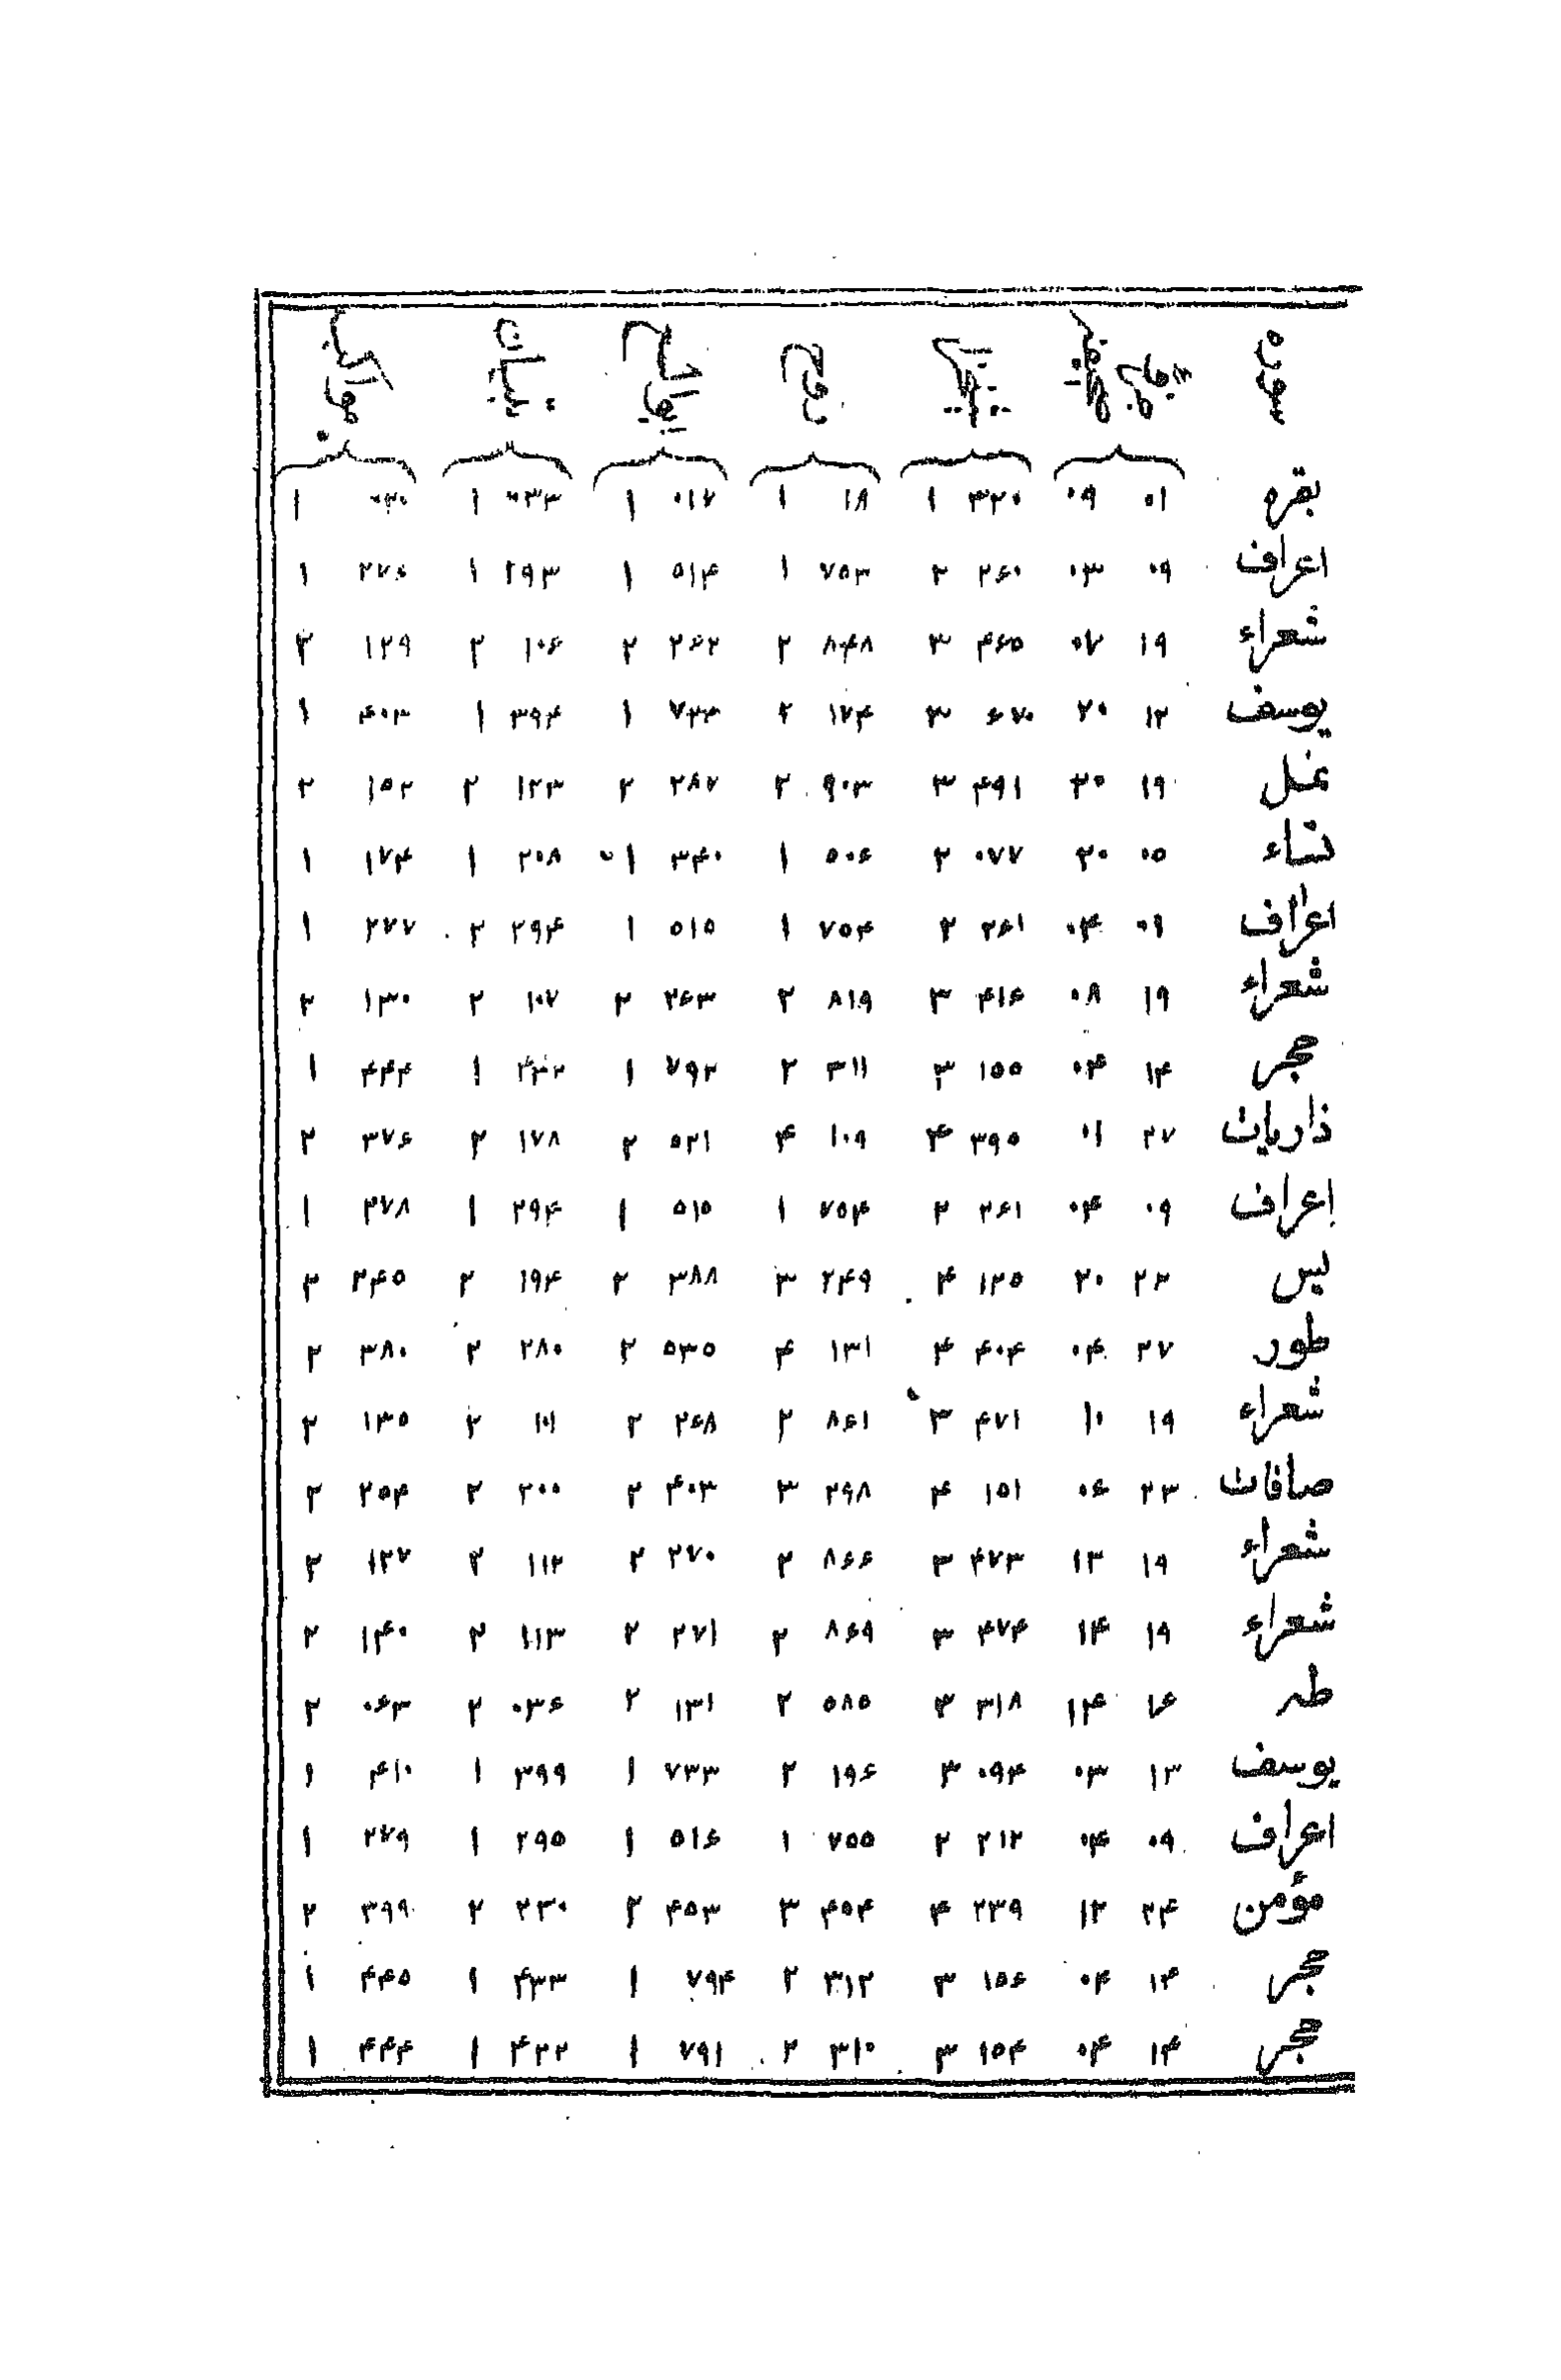 سوره
بقره ۰۱ ۰۹ ۳۲۰ ۱ ۱۸ ۱ ۰۱۷ ۱ ۰۳۳ ۱ ۰۳۰ ۱
اعراف ۰۹ ۰۳ ۲۶۰ ۲ ۷۵۳ ۱ ۵۱۴ ۱ ۲۹۳ ۱ ۲۷۶ ۱
شعراء ۱۹ ۰۷ ۴۶۵ ۳ ۸۴۸ ۲ ۲۶۲ ۲ ۱۰۶ ۲ ۱۲۹ ۲
یوسف ۱۲ ۲۰ ۶۷۰ ۳ ۱۷۴ ۲ ۷۲۳ ۱ ۳۹۴ ۱ ۴۰۳ ۱
نمل ۱۹ ۲۰ ۴۹۱ ۳ ۹۰۳ ۲ ۲۸۷ ۲ ۱۲۳ ۲ ۱۵۲ ۲
نساء ۰۵ ۲۰ ۰۷۷ ۲ ۵۰۶ ۱ ۳۴۰ ۱ ۲۰۸ ۱ ۱۷۴ ۱
اعراف ۰۹ ۰۴ ۲۶۱ ۲ ۷۵۴ ۱ ۵۱۵ ۱ ۲۹۴ ۲ ۲۷۷ ۱
شعراء ۱۹ ۰۸ ۴۱۶ ۳ ۸۱۹ ۲ ۲۶۳ ۲ ۱۰۷ ۲ ۱۳۰ ۲
حجر ۱۴ ۰۴ ۱۵۵ ۳ ۳۱۱ ۲ ۷۹۲ ۱ ۴۳۲ ۱ ۴۴۴ ۱
ذاریات ۲۷ ۰۱ ۳۹۵ ۴ ۱۰۹ ۴ ۵۲۱ ۲ ۱۷۸ ۲ ۳۷۶ ۲
اعراف ۰۹ ۰۴ ۲۶۱ ۲ ۷۵۴ ۱ ۵۱۵ ۱ ۲۹۴ ۱ ۲۷۸ ۱
یس ۲۲ ۲۰ ۱۲۵ ۴ ۲۴۹ ۳ ۳۸۸ ۲ ۱۹۴ ۲ ۲۴۵ ۲
طور ۲۷ ۰۴ ۴۰۴ ۴ ۱۳۱ ۴ ۵۳۵ ۲ ۲۸۰ ۲ ۳۸۰ ۲
شعراء ۱۹ ۱۰ ۴۷۱ ۳ ۸۶۱ ۲ ۲۶۸ ۲ ۱۰۱ ۲ ۱۳۵ ۲
صافات ۲۳ ۰۶ ۱۵۱ ۴ ۲۹۸ ۳ ۴۰۳ ۲ ۲۰۰ ۲ ۲۵۴ ۲
شعراء ۱۹ ۱۳ ۴۷۳ ۳ ۸۶۶ ۲ ۲۷۰ ۲ ۱۱۲ ۲ ۱۳۷ ۲
شعراء ۱۹ ۱۴ ۴۷۴ ۳ ۸۶۹ ۲ ۲۷۱ ۲ ۱۱۳ ۲ ۱۴۰ ۲
طه ۱۶ ۱۴ ۳۱۸ ۳ ۵۸۵ ۲ ۱۳۱ ۲ ۰۳۶ ۲ ۰۶۳ ۲
یوسف ۱۳ ۰۳ ۰۹۴ ۳ ۱۹۶ ۲ ۷۳۳ ۱ ۳۹۹ ۱ ۴۱۰ ۱
اعراف ۰۹ ۰۴ ۲۱۲ ۲ ۷۵۵ ۱ ۵۱۶ ۱ ۲۹۵ ۱ ۲۷۹ ۱
مؤمن ۲۴ ۱۲ ۲۳۹ ۴ ۴۵۴ ۳ ۴۵۳ ۲ ۲۳۰ ۲ ۳۹۹ ۲
حجر ۱۴ ۰۴ ۱۵۶ ۳ ۳۱۲ ۲ ۷۹۴ ۱ ۴۳۳ ۱ ۴۴۵ ۱
حجر ۱۴ ۰۴ ۱۵۴ ۳ ۳۱۰ ۲ ۷۹۱ ۱ ۴۲۲ ۱ ۴۴۴ ۱